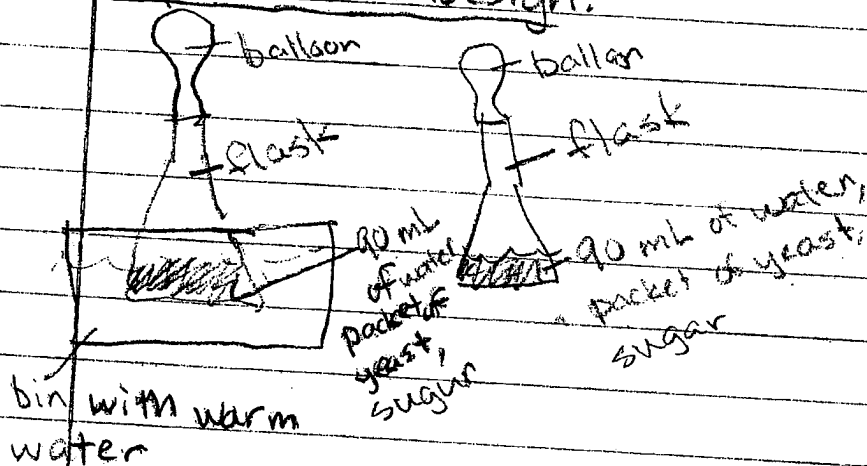 design.
balloon
flask
90 mL
of water
packet of
yeast,
sugur
bin with warm
water
ballon
flask
90 mL of water,
packet of yeast,
sugar